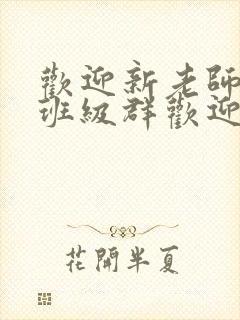 歡迎新老師
班級群歡迎
花開半夏